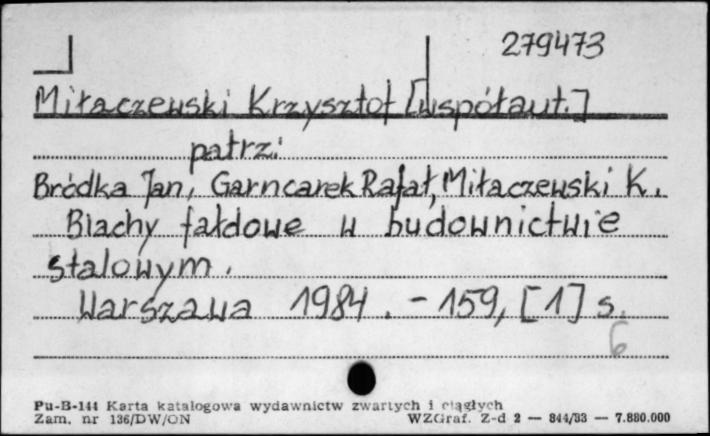 279473
Miłaczewski Krzysztof [współaut.]
patrz:
Bródka Jan, Garncarek Rafał, Miłaczewski K.
Blachy fałdowe w budownictwie
stalowym.
Warszawa 1984. - 159, [1] s.
6
Pu-B-144 Karta katalogowa wydawnictw zwartych i ciągłych
Zam. nr 136/DW/ON WZGraf. Z-d 2 — 844/83 — 7.880.000